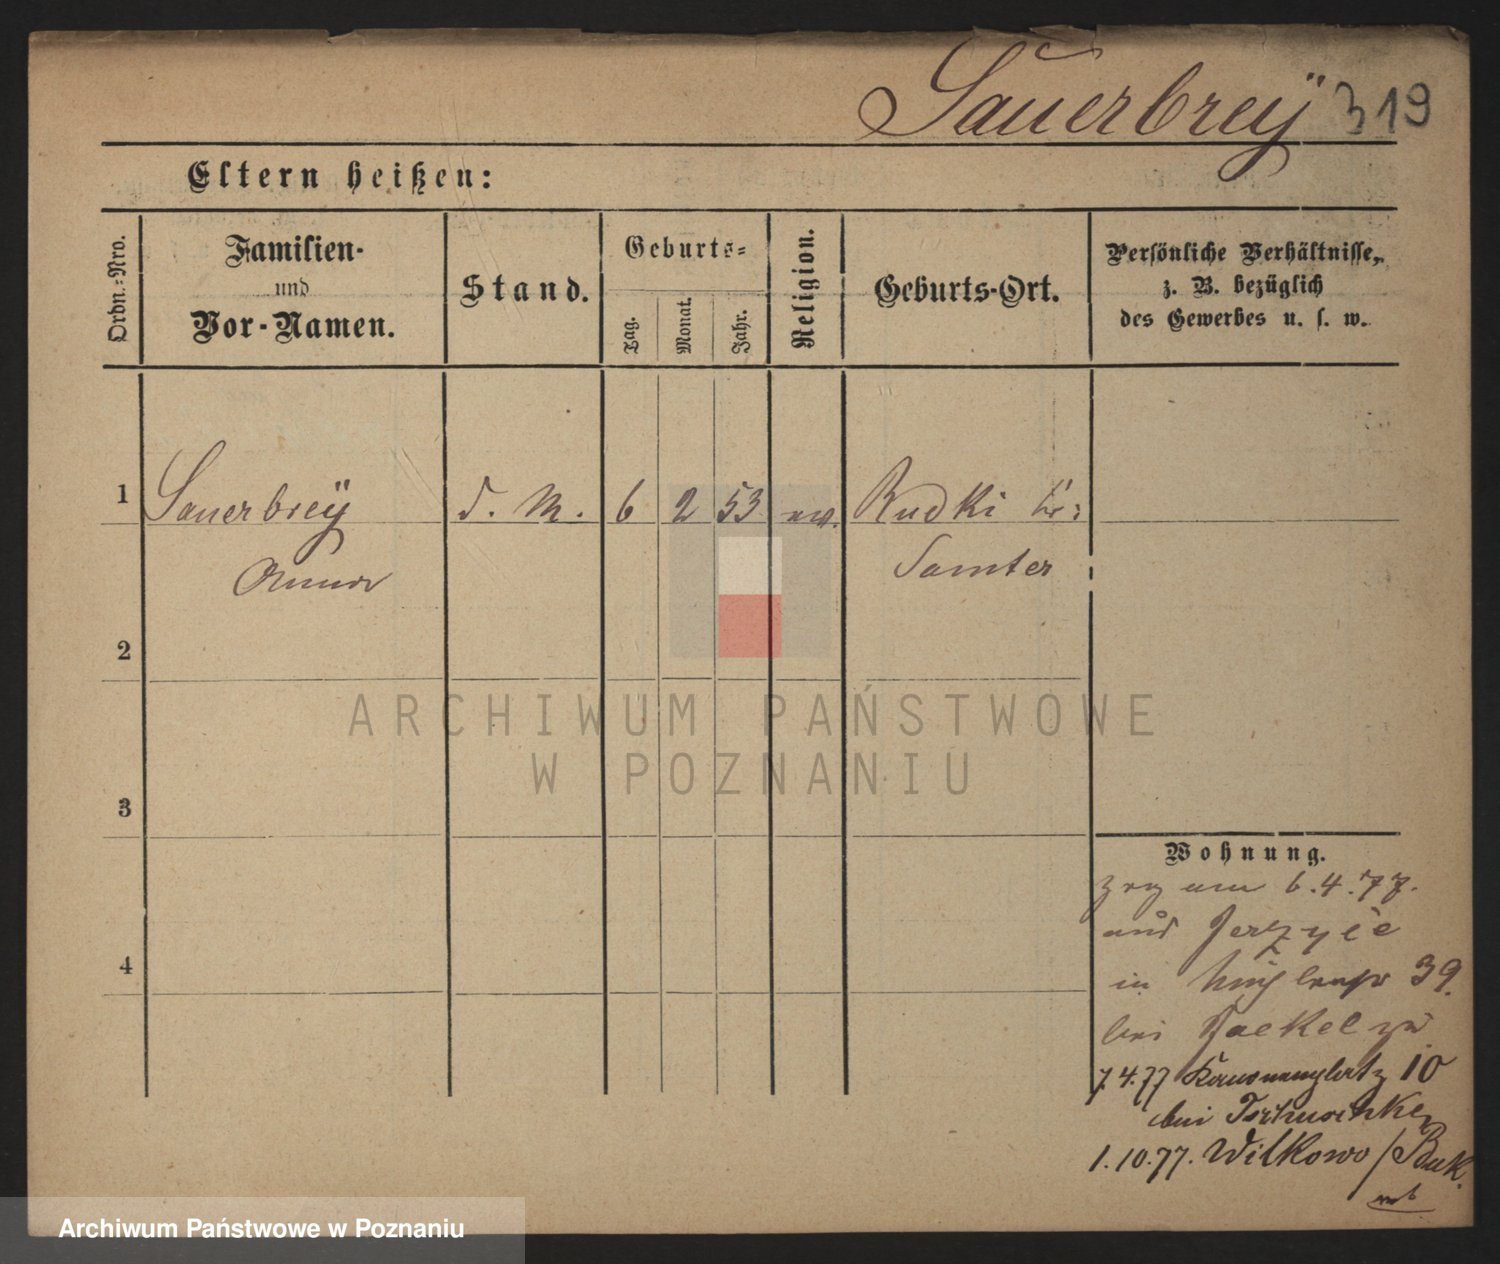 Sauerbreÿ 319
Eltern heißen:
Ordn.-Nro.
Familien-
und
Vor-Namen.
Stand.
Geburts-
Tag.
Monat.
Jahr.
Religion.
Geburts-Ort.
Persönliche Verhältnisse,
z. B. bezüglich
des Gewerbes u. s. w.
1 Sauerbreÿ d. M. 6 2 53 ev. Rudki Kr:
Anna Samter
2
3
4
Wohnung.
zog am 6.4.77.
aus Jerzyce
in 39.
bei Jaekel zu
7.4.77 Kanonenplatz 10
bei
1.10.77. Wilkowo / Buk.
ARCHIWUM PAŃSTWOWE
W POZNANIU
Archiwum Państwowe w Poznaniu